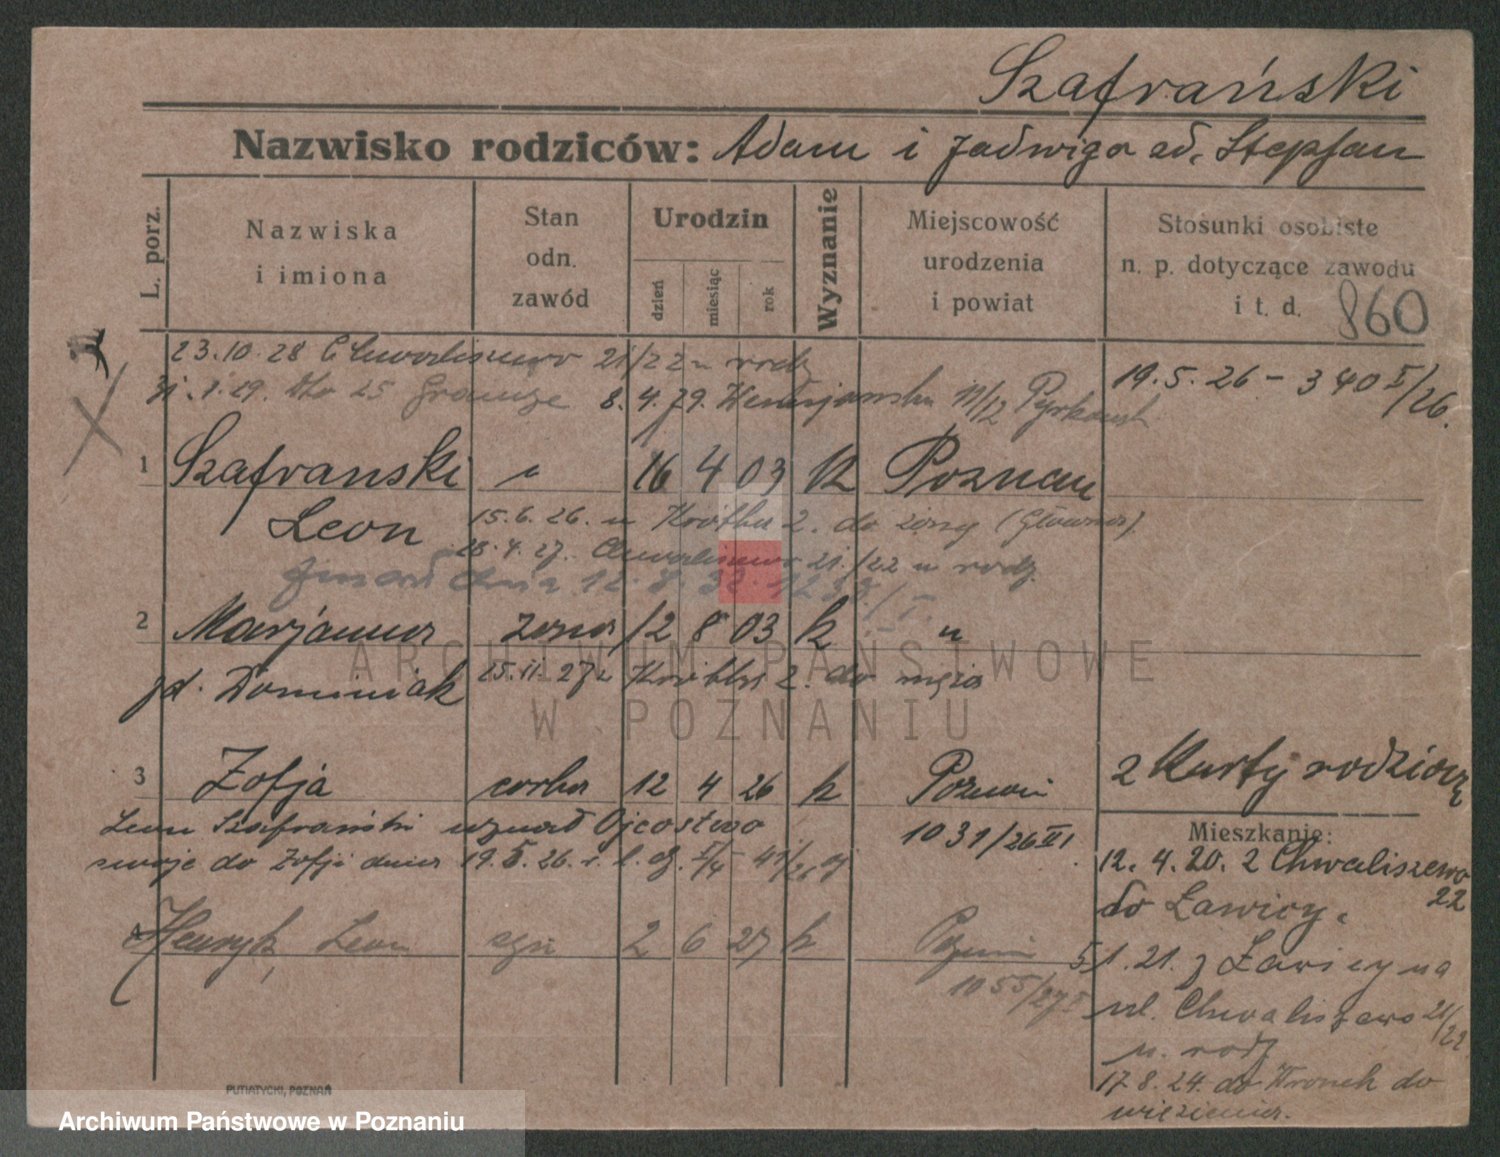 Szafrański
Nazwisko rodziców: Adam i Jadwiga
L. porz.
Nazwiska i imiona
Stan odn. zawód
Urodzin
dzień
miesiąc
rok
Wyznanie
Miejscowość urodzenia i powiat
Stosunki osobiste n. p. dotyczące zawodu i t. d.
860
23.10.28 Chwaliszewo 21/22 u rodz
8.4.29.
19.5.26 - 340 I/26.
1 Szafranski 16 4 03 k Poznan
Leon 15.6.26. u 2. do żony (Główna)
28.4.27. Chwaliszewo 21/22 u rodz
dnia 12.8.32.
2 Marjanna żona 12 8 03 k "
Dominiak 15.11.27 2. do męża
ARCHIWUM PAŃSTWOWE
W POZNANIU
3 Zofja corka 12 4 26 k Poznań
1031/26 III
2 Karty rodzicą
Leon Szafrański uznał Ojcostwo
swoje do Zofji dnia 19.5.26.
4 Henryk, Leon syn 2 6 27 k Poznań
1055/27
Mieszkanie:
12.4.20. z Chwaliszewo
22
do Ławicy.
5.1.21. z Ławicy na
ul. Chwaliszewo 21/22
u. rodz
17.8.24. do Wronek do
więzienia.
PUTIATYCKI, POZNAŃ
Archiwum Państwowe w Poznaniu